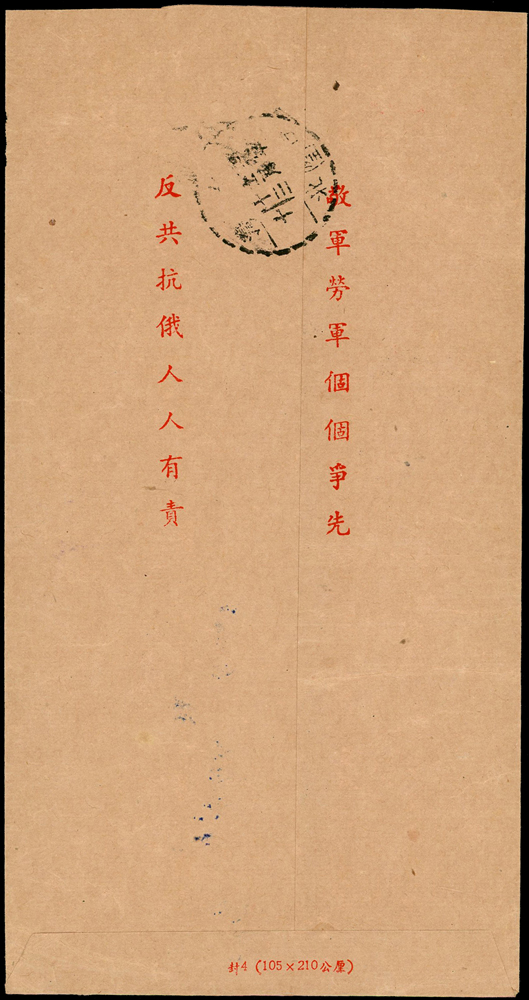 敬軍勞軍個個爭先
反共抗俄人人有責
封4 (105×210公厘)